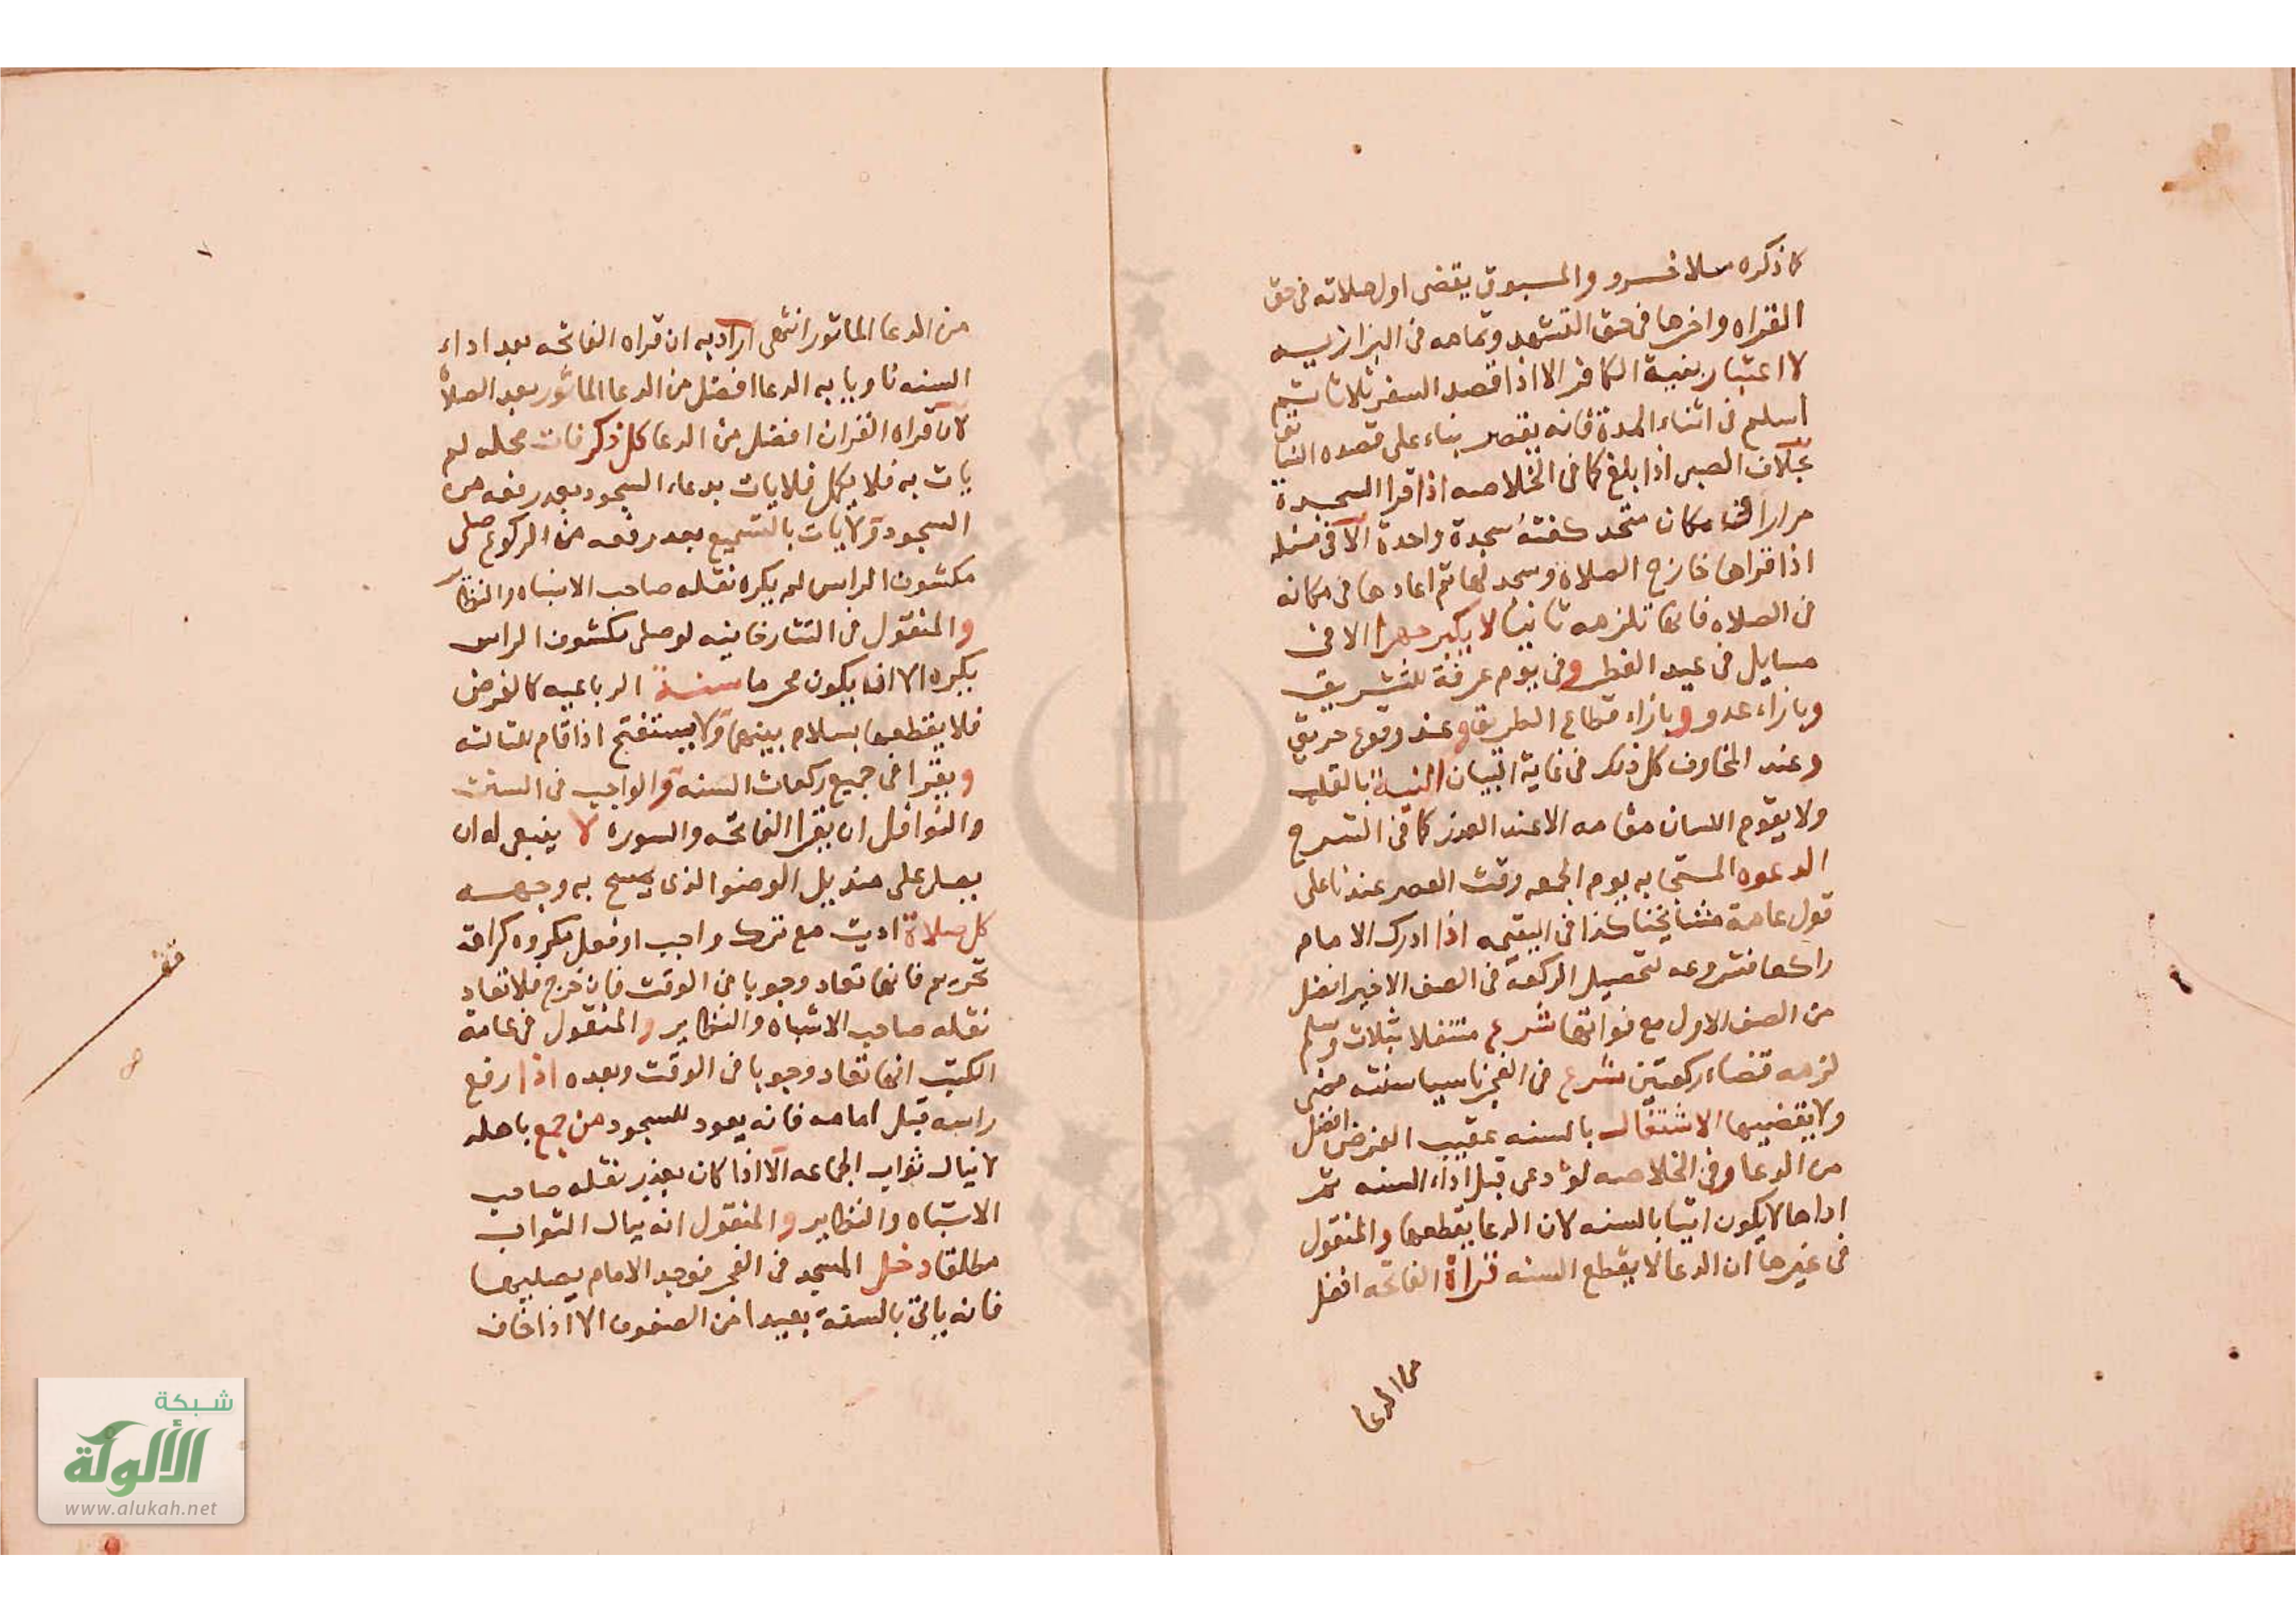 كما ذكره ملا خسرو والمسبوق يقضى اول صلاته فى حق
القراه واخرها فى حق التشهد وتمامه فى البزازيه
لا اعتبار بنية الكافر الا اذا قصد السفر ثلاثا ثم
اسلم فى اثناء المدة فانه يقصر بناء على قصده السابق
بخلاف الصبى اذا بلغ كما فى الخلاصه اذا قرا السجدة
مرارا فى مكان متحد كفته سجدة واحدة الا فى مسئله
اذا قراها خارج الصلاة وسجد لها ثم اعادها فى مكانه
فى الصلاه فانها تلزمه ثانيا لا يكبر جهرا الا فى
مسايل فى عيد الفطر وفى يوم عرفة للتشريق
وبازاء عدو وبازاء قطاع الطريق وعند وقوع حريق
وعند المخاوف كل ذلك فى غاية البيان النية بالقلب
ولا يقوم اللسان مقامه الا عند العذر كما فى الشرح
الدعوه المستجابه يوم الجمعه وقت العصر عندنا على
قول عامة مشايخنا كذا فى اليتيمه اذا ادرك الامام
راكعا فشروعه لتحصيل الركعة فى الصف الاخير افضل
من الصف الاول مع فواتها شرع متنفلا بثلاث وسلم
لزمه قضاء ركعتين شرع فى الفجر ناسيا سنته مضى
ولا يقضيها الاشتغال بالسنه عقيب الفرض افضل
من الدعا وفى الخلاصه لو دعى قبل اداء السنه ثم
اداها لا يكون اتيا بالسنه لان الدعا يقطعها والمنقول
فى غيرها ان الدعا لا يقطع السنه قراة الفاتحه افضل
من الدعا
من الدعا الماثور انتهى اراد به ان قراه الفاتحه بعد اداء
السنه ناويا به الدعا افضل من الدعا الماثور بعد الصلاة
لان قراه القران افضل من الدعا كل ذكر فات محله لم
يات به فلا يكمل فلا يات بدعاء السجود بعد رفعه من
السجود ولا يات بالتسميع بعد رفعه من الركوع صلى
مكشوف الراس لم يكره نقله صاحب الاشباه والنظاير
والمنقول فى التتارخانيه لو صلى مكشوف الراس
يكره الا ان يكون محرما سنة الرباعيه كالفرض
فلا يقطعها بسلام بينها ولا يستفتح اذا قام للثالثه
ويقرا فى جميع ركعات السنه والواجب فى السنن
والنوافل ان يقرا الفاتحه والسورة لا ينبغى له ان
يصلى على منديل الوضوا الذى يمسح به وجهه
كل صلاة اديت مع ترك واجب او فعل مكروه كراهة
تحريم فانها تعاد وجوبا فى الوقت فان خرج فلا تعاد
نقله صاحب الاشباه والنظاير والمنقول فى عامة
الكتب انها تعاد وجوبا فى الوقت وبعده اذا رفع
راسه قبل امامه فانه يعود للسجود من جمع باهله
لا ينال ثواب الجماعه الا اذا كان بعذر نقله صاحب
الاشباه والنظاير والمنقول انه ينال الثواب
مطلقا دخل المسجد فى الفجر فوجد الامام يصليها
فانه ياتى بالسنة بعيدا من الصفوف الا اذا خاف
قف
شبكة
الألوكة
www.alukah.net